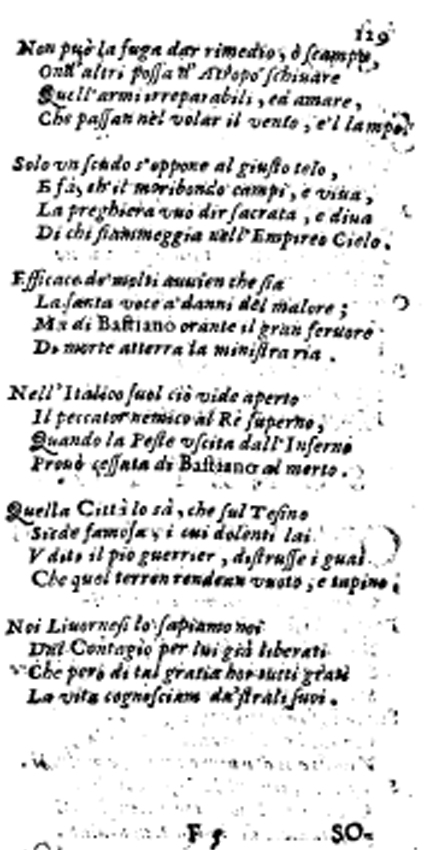 129
Non può la fuga dar rimedio, ò scampo,
Ond'altri possa d'Atropo schiuare
Quell'armi irreparabili, ed amare,
Che passan nel volar il vento, e'l lampo.
Solo vn scudo s'oppone al giusto telo,
E fà, ch'il moribondo campi, e viua,
La preghiera vuo dir sacrata, e diua
Di chi fiammeggia nell'Empireo Cielo.
Efficace de' molti auuien che sia
La santa voce a' danni del malore;
Ma di Bastiano orante il gran feruore
Di morte atterra la ministra ria.
Nell'Italico suol ciò vide aperto
Il peccator nemico al Rè superno,
Quando la Peste vscita dall'Inferno
Prouò cessata di Bastiano al merto.
Quella Città lo sà, che sul Tesino
Siede famosa, i cui dolenti lai
Vditi il pio guerrier, distrusse i guai
Che quel terren rendean vuoto, e tapino.
Noi Liuornesi lo sapiamo noi
Dal Contagio per lui già liberati
Che però di tal gratia hor tutti grati
La vita cognosciam da' strali suoi.
F 5 SO-